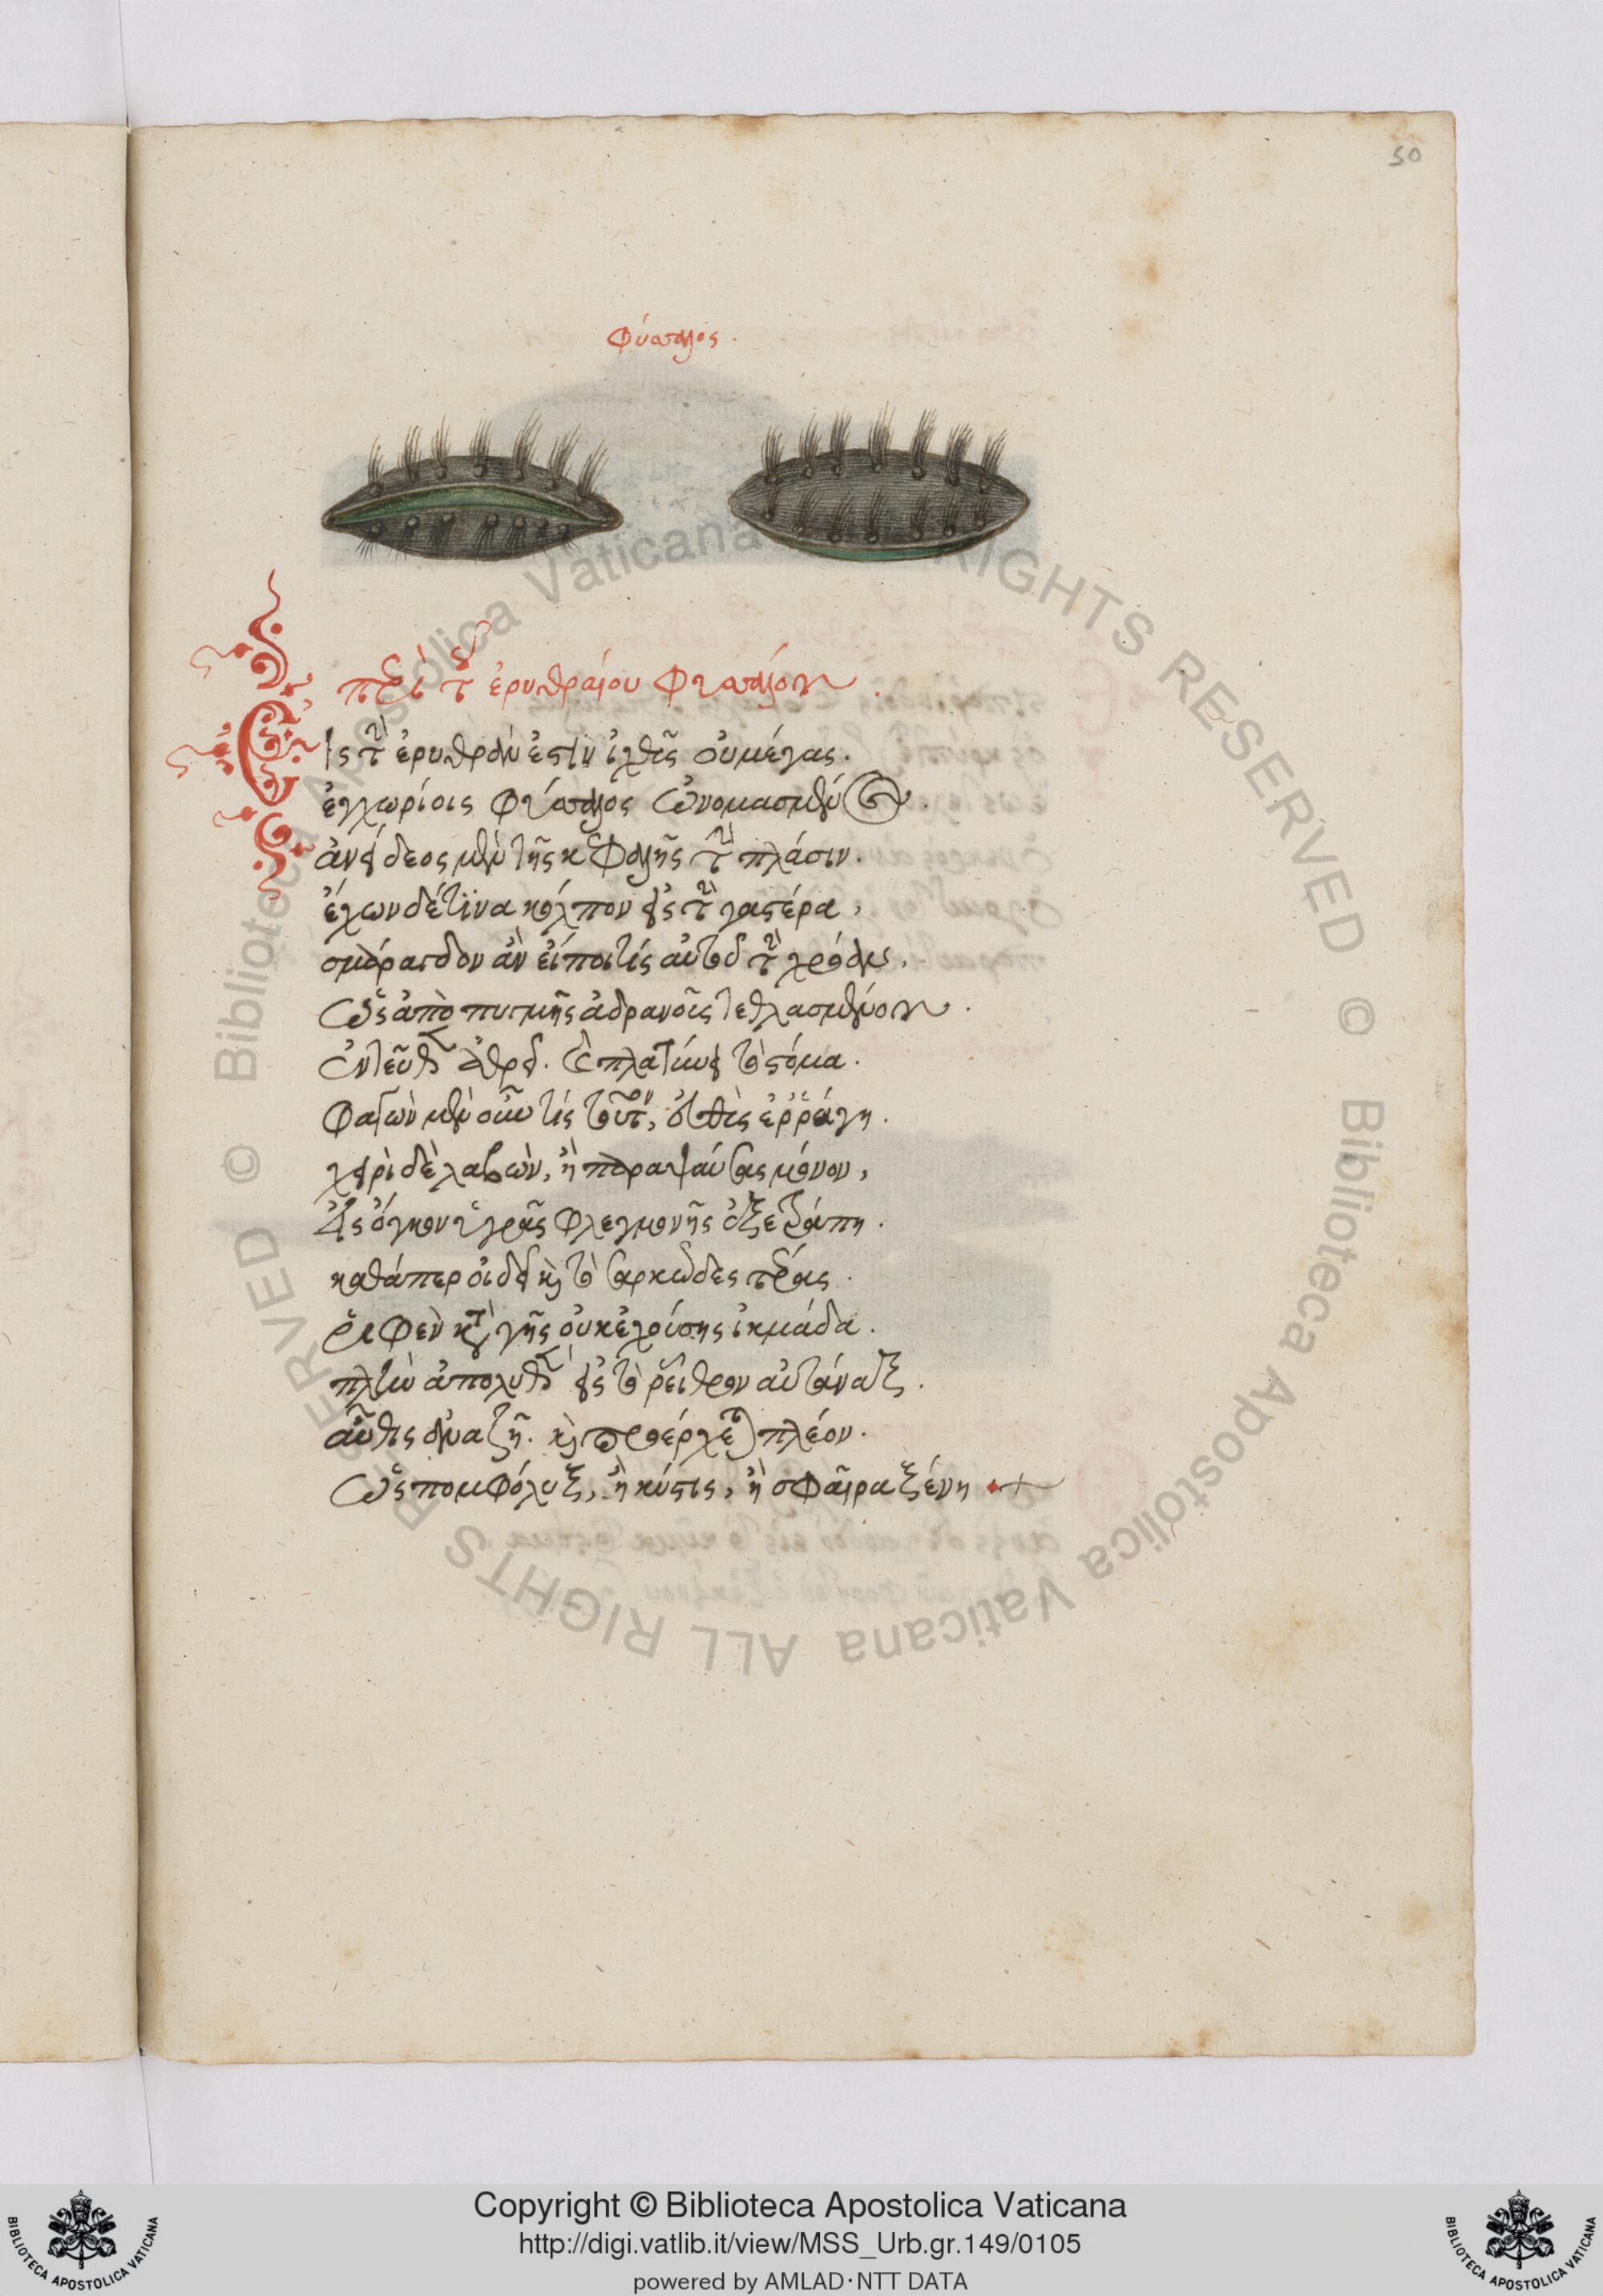 50
φύσαλος.
περὶ τοῦ ἐρυθραίου φυσάλου.
Εἰς τὴν ἐρυθρὰν ἐστὶν ἰχθῦς οὐ μέγας.
ἐγχωρίοις φύσαλος ὠνομασμένος.
ἀνείδεος μὲν τῆς κεφαλῆς τὴν πλάσιν.
ἔχων δέ τινα κόλπον εἰς τὴν γαστέρα,
σμάραγδον ἂν εἴποι τίς αὐτοῦ τὴν χρόαν,
ὡς ἀπὸ πυγμῆς ἁδρανοῖς τεθλασμένον.
ἐντεῦθεν αἴρει. ἐπλατύνει τὸ στόμα.
φαγὼν μὲν οὖν τίς τοῦτον, εὐθὺς ἐρράγη.
χειρὶ δὲ λαβὼν, ἢ παραψαύσας μόνον,
εἰς ὄγκον ὑγρᾶς φλεγμονῆς ἐξετράπη.
καθάπερ οἰδεῖ καὶ τὸ σαρκῶδες τρέας.
ῥιφὲν κατὰ γῆς οὐκ ἐχούσης ἰκμάδα.
πλὴν ἀπολυθὲν εἰς τὸ ῥεῖθρον αὐτάναξ.
αὖθις ἀναζῇ. καὶ προσέρχεται πλέον.
ὡς πομφόλυξ, ἢ κύστις, ἢ σφαῖρα ξένη
Copyright © Biblioteca Apostolica Vaticana
http://digi.vatlib.it/view/MSS_Urb.gr.149/0105
powered by AMLAD·NTT DATA
BIBLIOTECA APOSTOLICA VATICANA
BIBLIOTECA APOSTOLICA VATICANA
© Biblioteca Apostolica Vaticana ALL RIGHTS RESERVED © Biblioteca Apostolica Vaticana ALL RIGHTS RESERVED